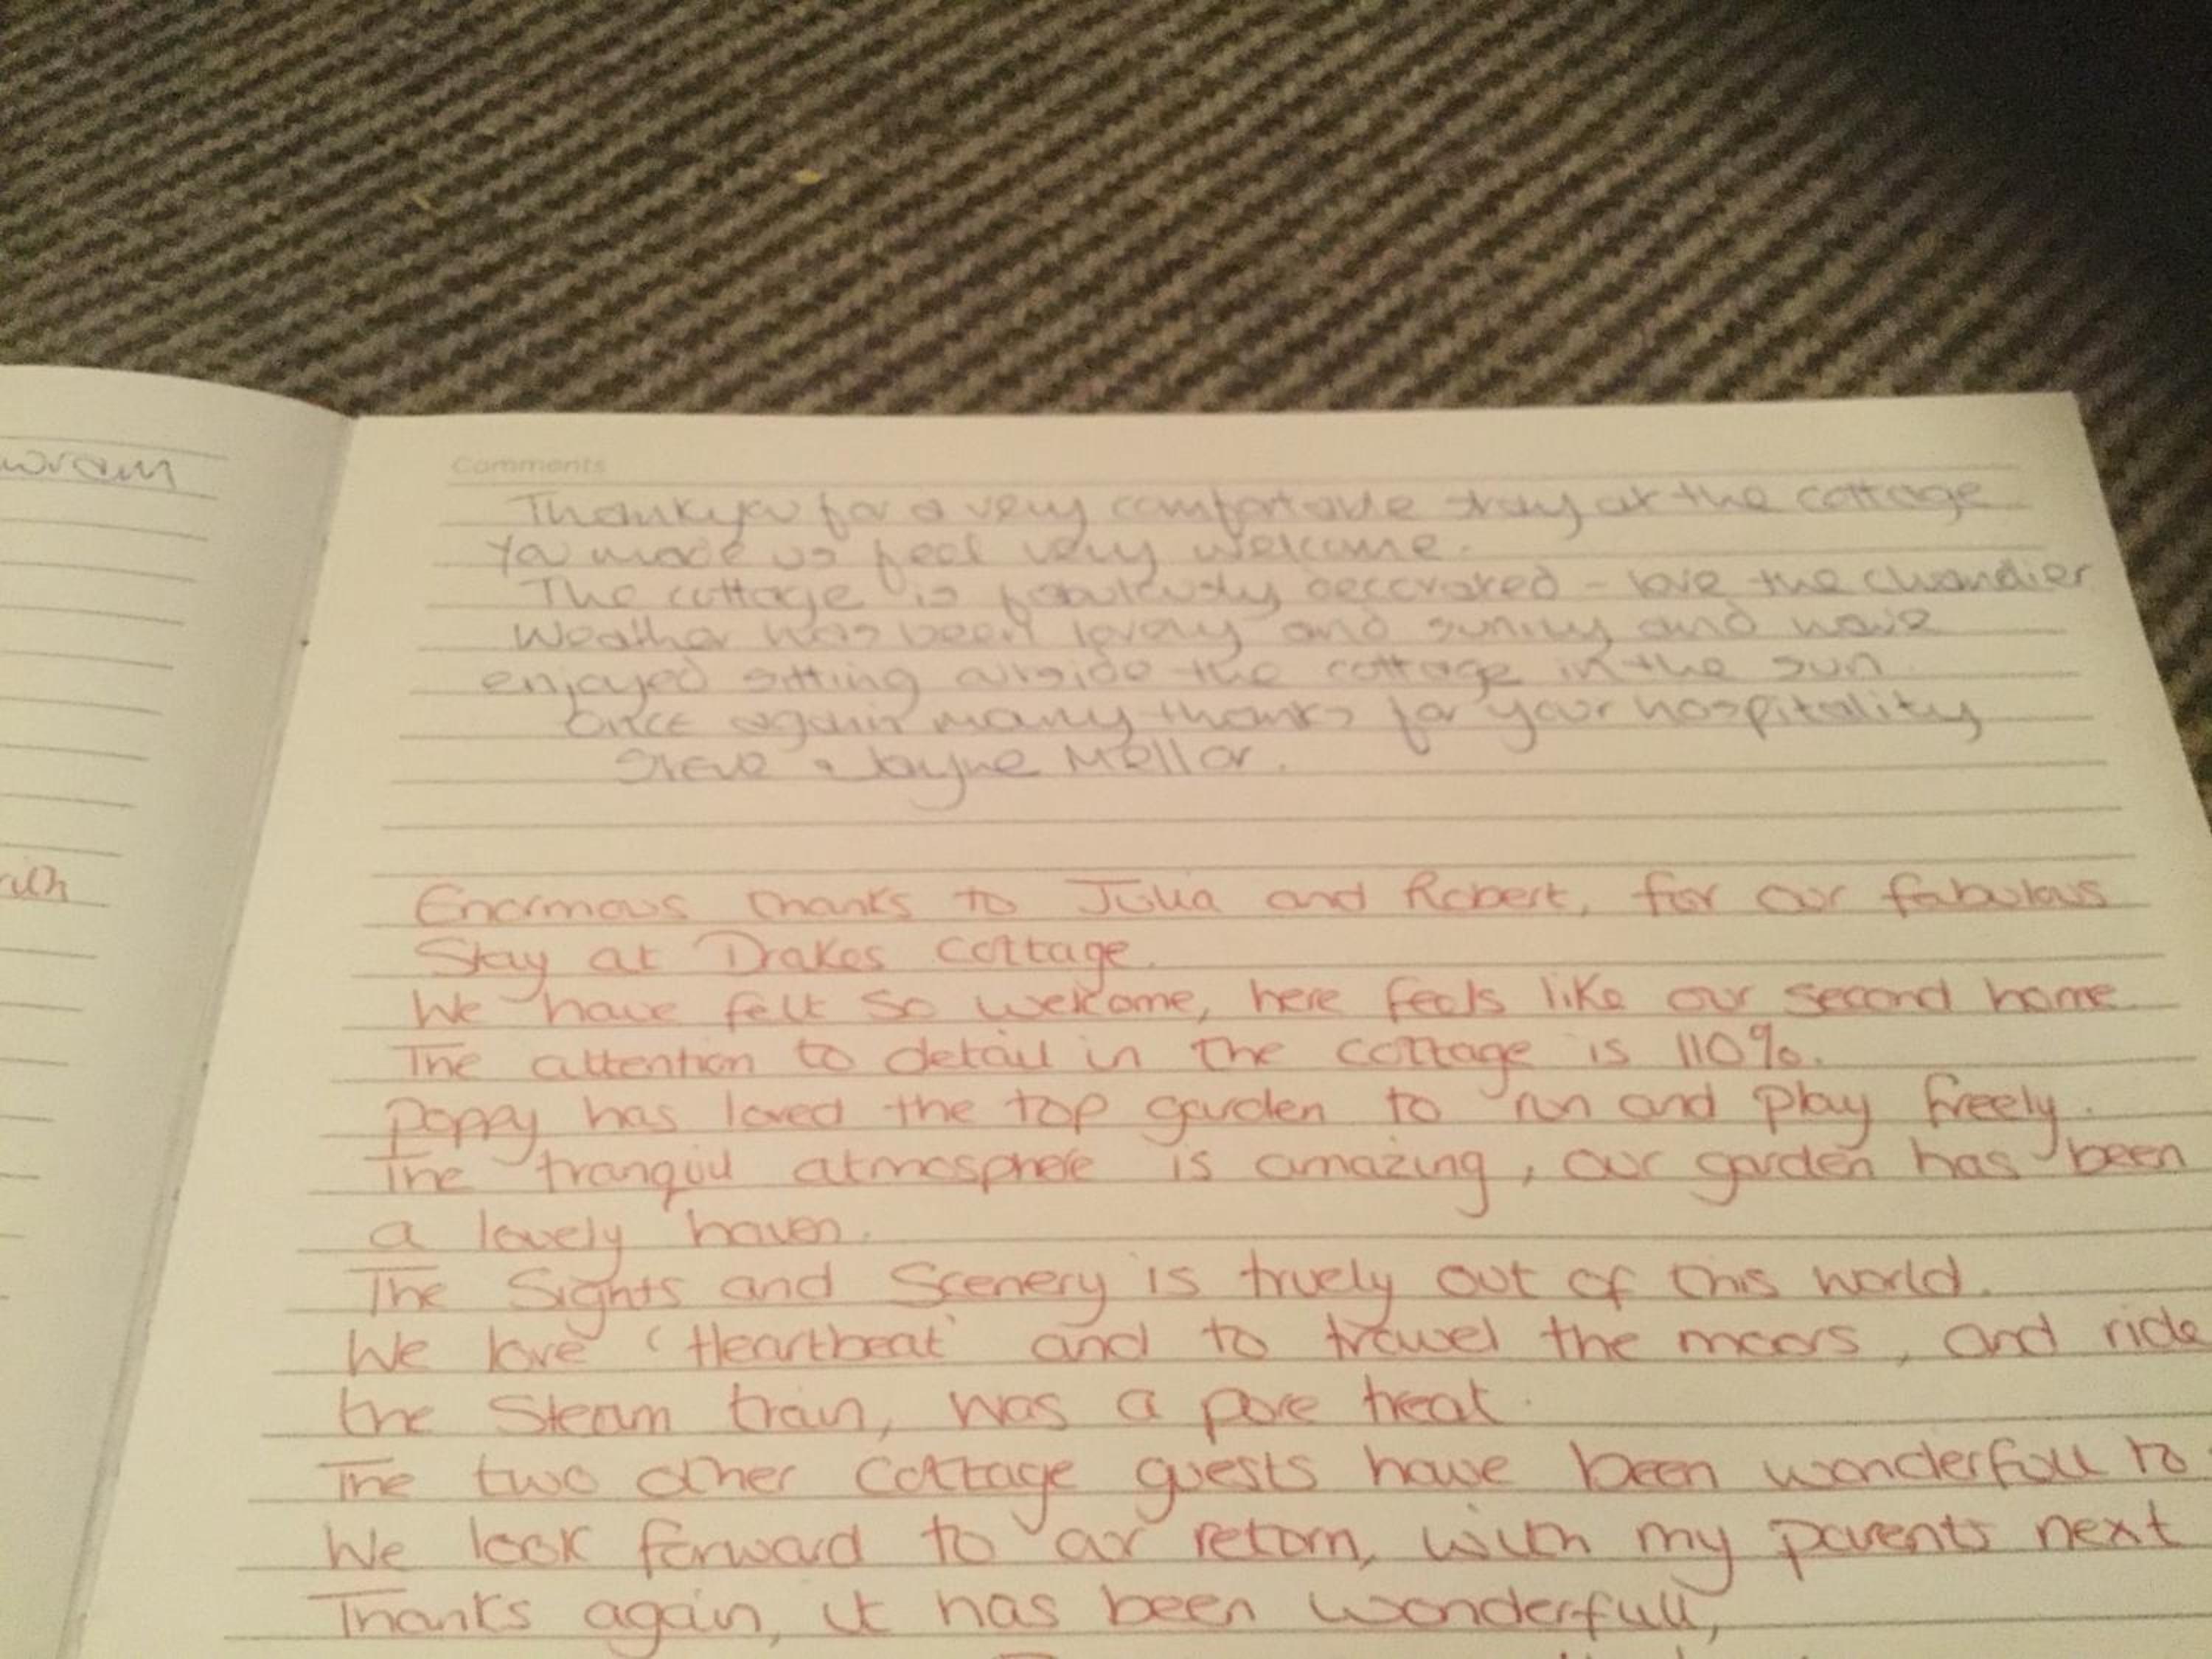 wram
uth
Comments
Thankyou for a very comfortable stay at the cottage
You made us feel very welcome.
The cottage is fabulously decorated - love the chandier
Weather has been lovely and sunny and have
enjoyed sitting outside the cottage in the sun
Once again many thanks for your hospitality
Steve & Jayne Mellor.
Enormous thanks to Julia and Robert, for our fabulous
Stay at Drakes Cottage.
We have felt so welcome, here feels like our second home
The attention to detail in the cottage is 110%.
Poppy has loved the top garden to run and play freely.
The tranquil atmosphere is amazing, our garden has been
a lovely haven.
The Sights and Scenery is truely out of this world.
We love 'Heartbeat' and to travel the moors, and ride
the Steam train, was a pure treat.
The two other Cottage guests have been wonderfull to
We look forward to our return, with my parents next
Thanks again, it has been wonderfull,